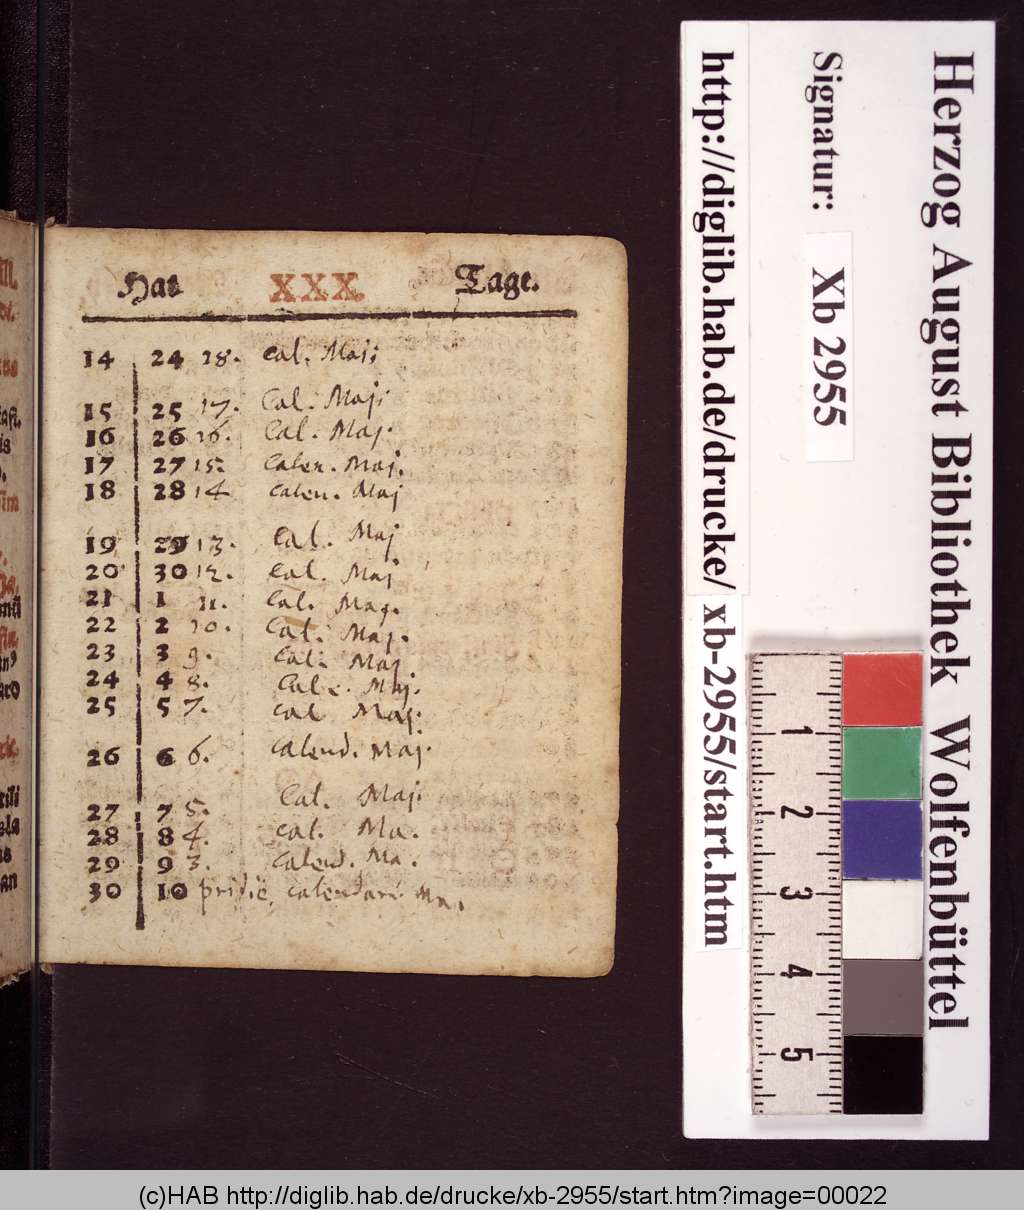 Hat XXX. Tage.
14 24 18. Cal. Maji
15 25 17. Cal. Maji
16 26 16. Cal. Maj.
17 27 15. Calen. Maj.
18 28 14 Calen. Maj
19 29 13. Cal. Maj
20 30 12. Cal. Maj
21 1 11. Cal. Maj.
22 2 10. Cal. Maj.
23 3 9. Cal. Maj
24 4 8. Cale. Maj.
25 5 7. Cal Maj.
26 6 6. Calend. Maj.
27 7 5. Cal. Maji
28 8 4. Cal. Ma.
29 9 3. Calend. Ma.
30 10 pridie. calendari. Ma.
Herzog August Bibliothek Wolfenbüttel
Signatur: Xb 2955
http://diglib.hab.de/drucke/ xb-2955/start.htm
1
2
3
4
5
(c)HAB http://diglib.hab.de/drucke/xb-2955/start.htm?image=00022